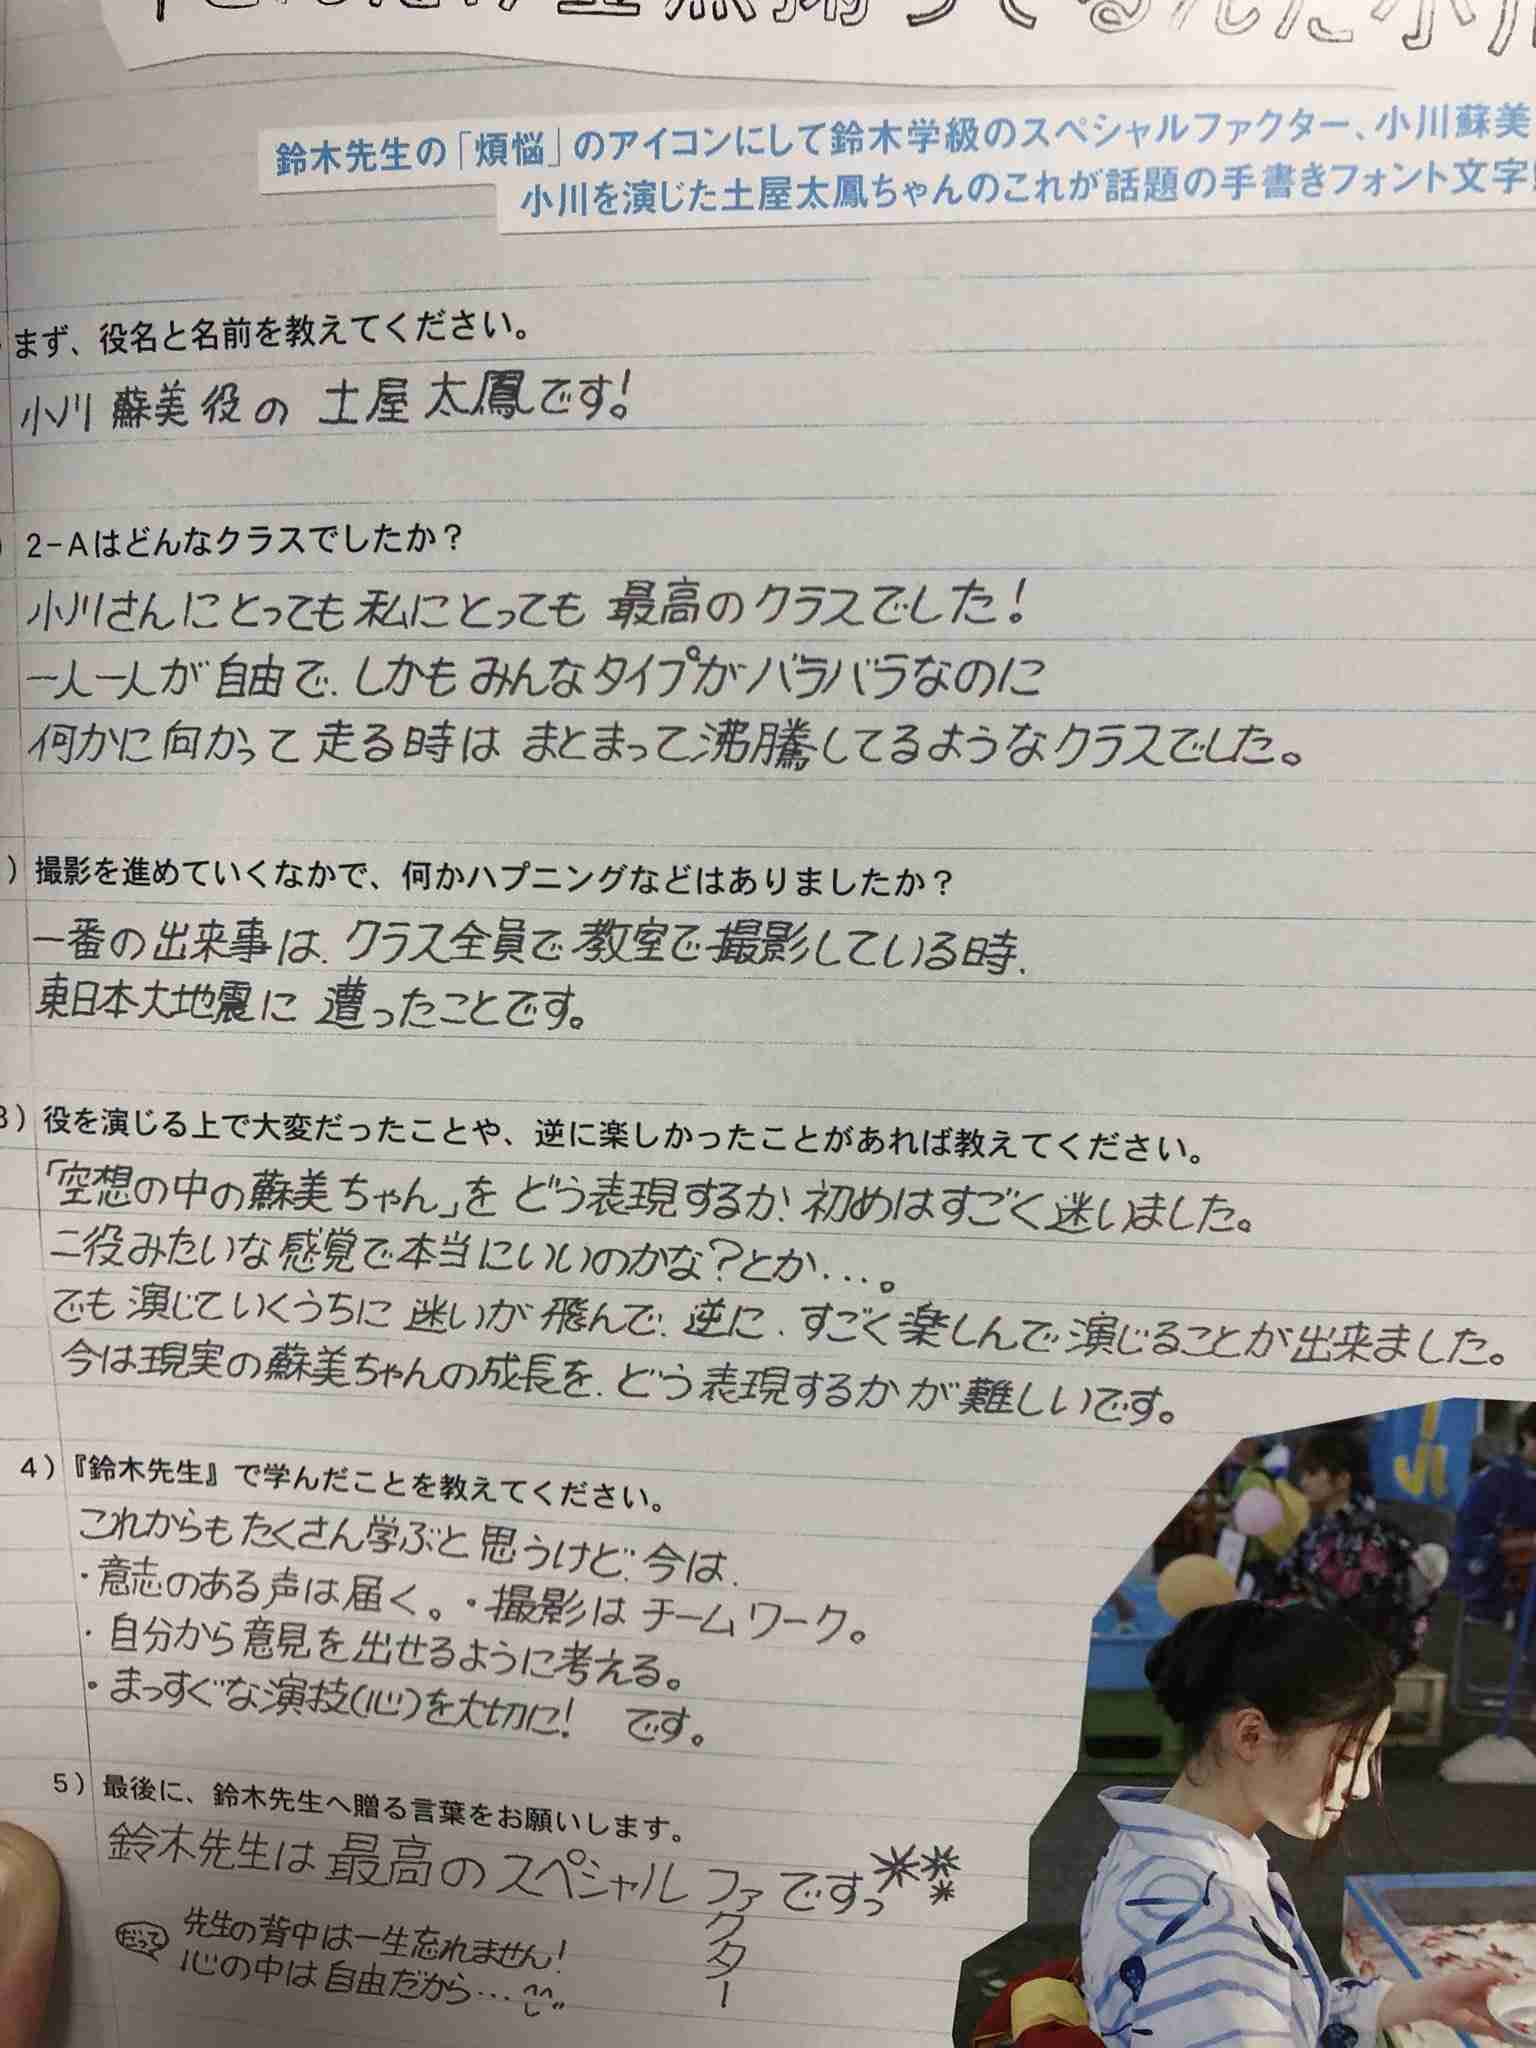 鈴木先生の「煩悩」のアイコンにして鈴木学級のスペシャルファクター、小川蘇美
小川を演じた土屋太鳳ちゃんのこれが話題の手書きフォント文字
まず、役名と名前を教えてください。
小川 蘇美 役の 土屋 太鳳です!
2-Aはどんなクラスでしたか?
小川さんにとっても 私にとっても 最高のクラスでした!
一人一人が 自由で、しかも みんなタイプがバラバラなのに
何かに 向かって 走る時は まとまって沸騰してるようなクラスでした。
)撮影を進めていくなかで、何かハプニングなどはありましたか?
一番の出来事は、クラス全員で教室で撮影している時、
東日本大地震に 遭ったことです。
3)役を演じる上で大変だったことや、逆に楽しかったことがあれば教えてください。
「空想の中の蘇美ちゃん」を どう表現するか、初めはすごく迷いました。
二役みたいな感覚で本当にいいのかな?とか…。
でも 演じていくうちに 迷いが 飛んで、逆に、すごく楽しんで演じることが出来ました。
今は現実の蘇美ちゃんの成長を、どう表現するかが難しいです。
4)『鈴木先生』で学んだことを教えてください。
これからもたくさん学ぶと思うけど、今は、
・意志のある声は届く。・撮影は チームワーク。
・自分から意見を出せるように考える。
・まっすぐな演技(心)を大切に! です。
5)最後に、鈴木先生へ贈る言葉をお願いします。
鈴木先生は最高のスペシャルファクターですっ
だって
先生の背中は一生忘れません!
心の中は自由だから…